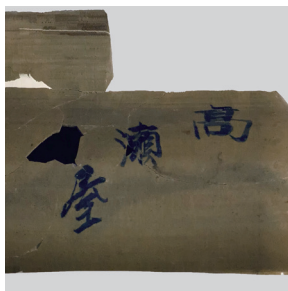 高瀬屋